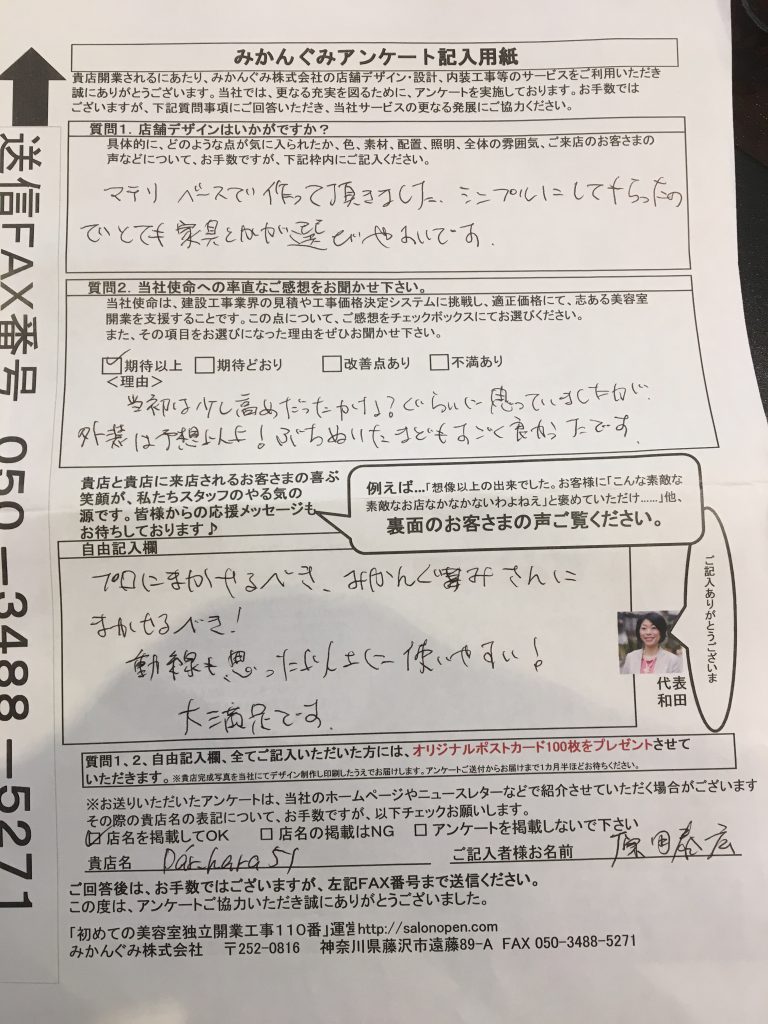 みかんぐみアンケート記入用紙
貴店開業されるにあたり、みかんぐみ株式会社の店舗デザイン・設計、内装工事等のサービスをご利用いただき
誠にありがとうございます。当社では、更なる充実を図るために、アンケートを実施しております。お手数では
ございますが、下記質問事項にご回答いただき、当社サービスの更なる発展にご協力ください。
質問1. 店舗デザインはいかがですか？
具体的に、どのような点が気に入られたか、色、素材、配置、照明、全体の雰囲気、ご来店のお客さまの
声などについて、お手数ですが、下記枠内にご記入ください。
マテリ ベースで作って頂きました、シンプルにしてもらったの
でとても家具とかが選びやすいです.
質問2. 当社使命への率直なご感想をお聞かせ下さい。
当社使命は、建設工事業界の見積や工事価格決定システムに挑戦し、適正価格にて、志ある美容室
開業を支援することです。この点について、ご感想をチェックボックスにてお選びください。
また、その項目をお選びになった理由をぜひお聞かせ下さい。
☑期待以上 □期待どおり □改善点あり □不満あり
＜理由＞
当初は少し高めだったかけ」？ぐらいに思っていましたが.
外装は予想以上！ぶちぬいたまどもすごく良かったです.
貴店と貴店に来店されるお客さまの喜ぶ
笑顔が、私たちスタッフのやる気の
源です。皆様からの応援メッセージも
お待ちしております♪
例えば…「想像以上の出来でした。お客様に「こんな素敵な
素敵なお店なかなかないわよねえ」と褒めていただけ……」他、
裏面のお客さまの声ご覧ください。
自由記入欄
プロにまかせるべき、みかんぐみさんに
まかせるべき！
動線も思った以上に使いやすい！
大満足です.
ご記入ありがとうございま
代表
和田
質問1、2、自由記入欄、全てご記入いただいた方には、オリジナルポストカード100枚をプレゼントさせて
いただきます。※貴店完成写真を当社にてデザイン制作し印刷したうえでお届けします。アンケートご送付からお届けまで1カ月半ほどお待ちください。
※お送りいただいたアンケートは、当社のホームページやニュースレターなどで紹介させていただく場合がございます
その際の貴店名の表記について、お手数ですが、以下チェックお願いします。
☑店名を掲載してOK □店名の掲載はNG □アンケートを掲載しないで下さい
貴店名 Dárhara 51 ご記入者様お名前
ご回答後は、お手数ではございますが、左記FAX番号まで送信ください。
この度は、アンケートご協力いただき誠にありがとうございました。
「初めての美容室独立開業工事110番」運営http://salonopen.com
みかんぐみ株式会社 〒252-0816 神奈川県藤沢市遠藤89-A FAX 050-3488-5271
送信FAX番号 050-3488-5271